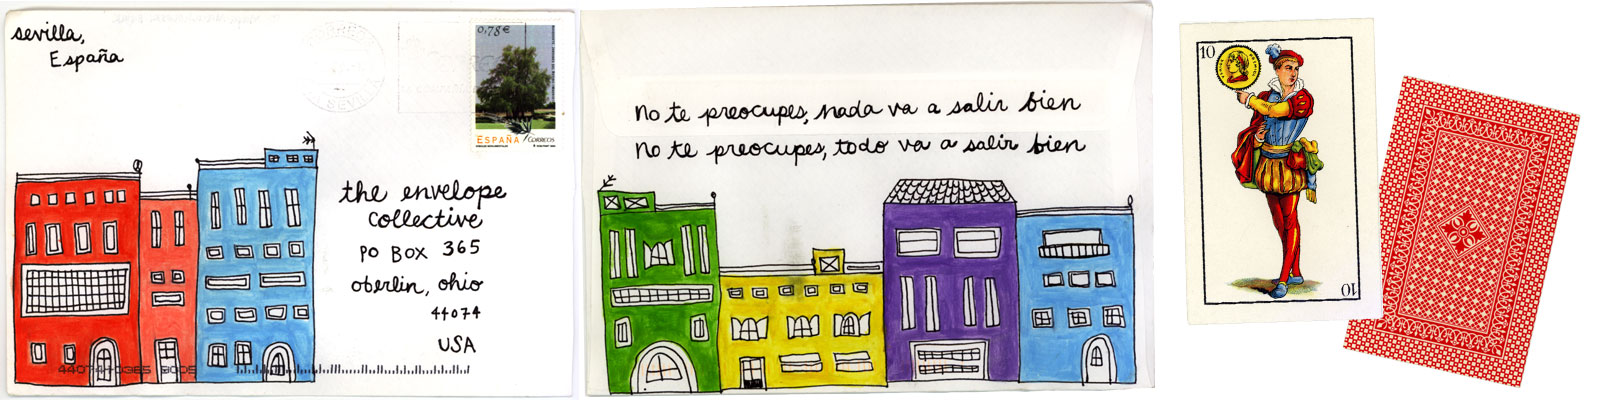 sevilla,
España
0,78€
CORREOS
SEVILLA
ESPAÑA CORREOS
the envelope
collective
PO BOX 365
oberlin, ohio
44074
USA
44074+0365 B005
No te preocupes, nada va a salir bien
No te preocupes, todo va a salir bien
10
10